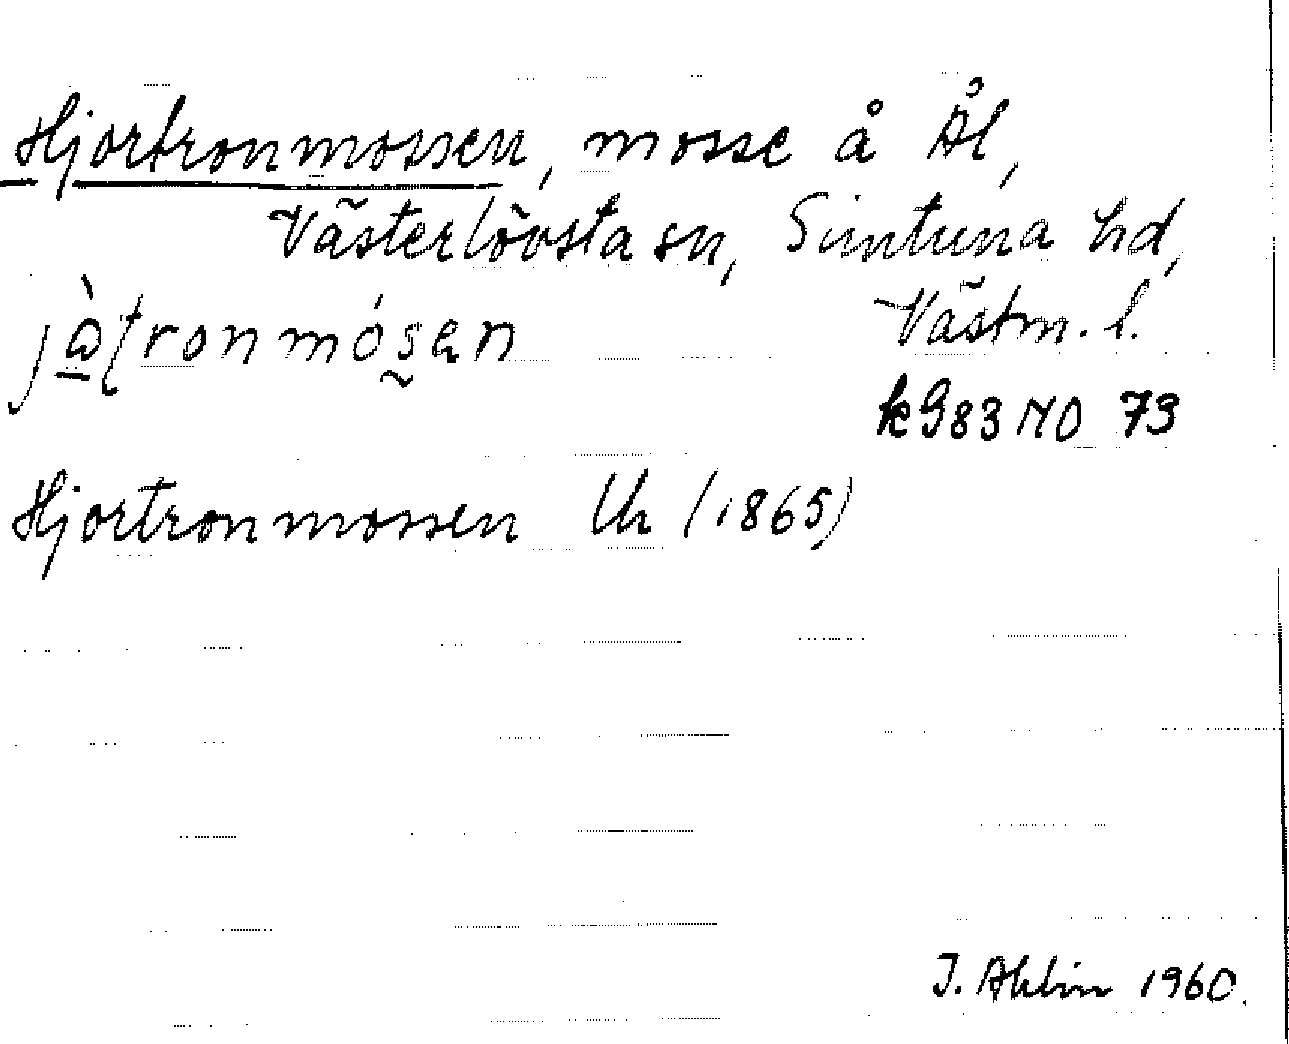 Hjortronmossen, mosse å Ål,
Västerlövsta sn, Simtuna hd,
Västm. l.
Hjortronmossen Uh (1865)
J. Ahlin 1960.